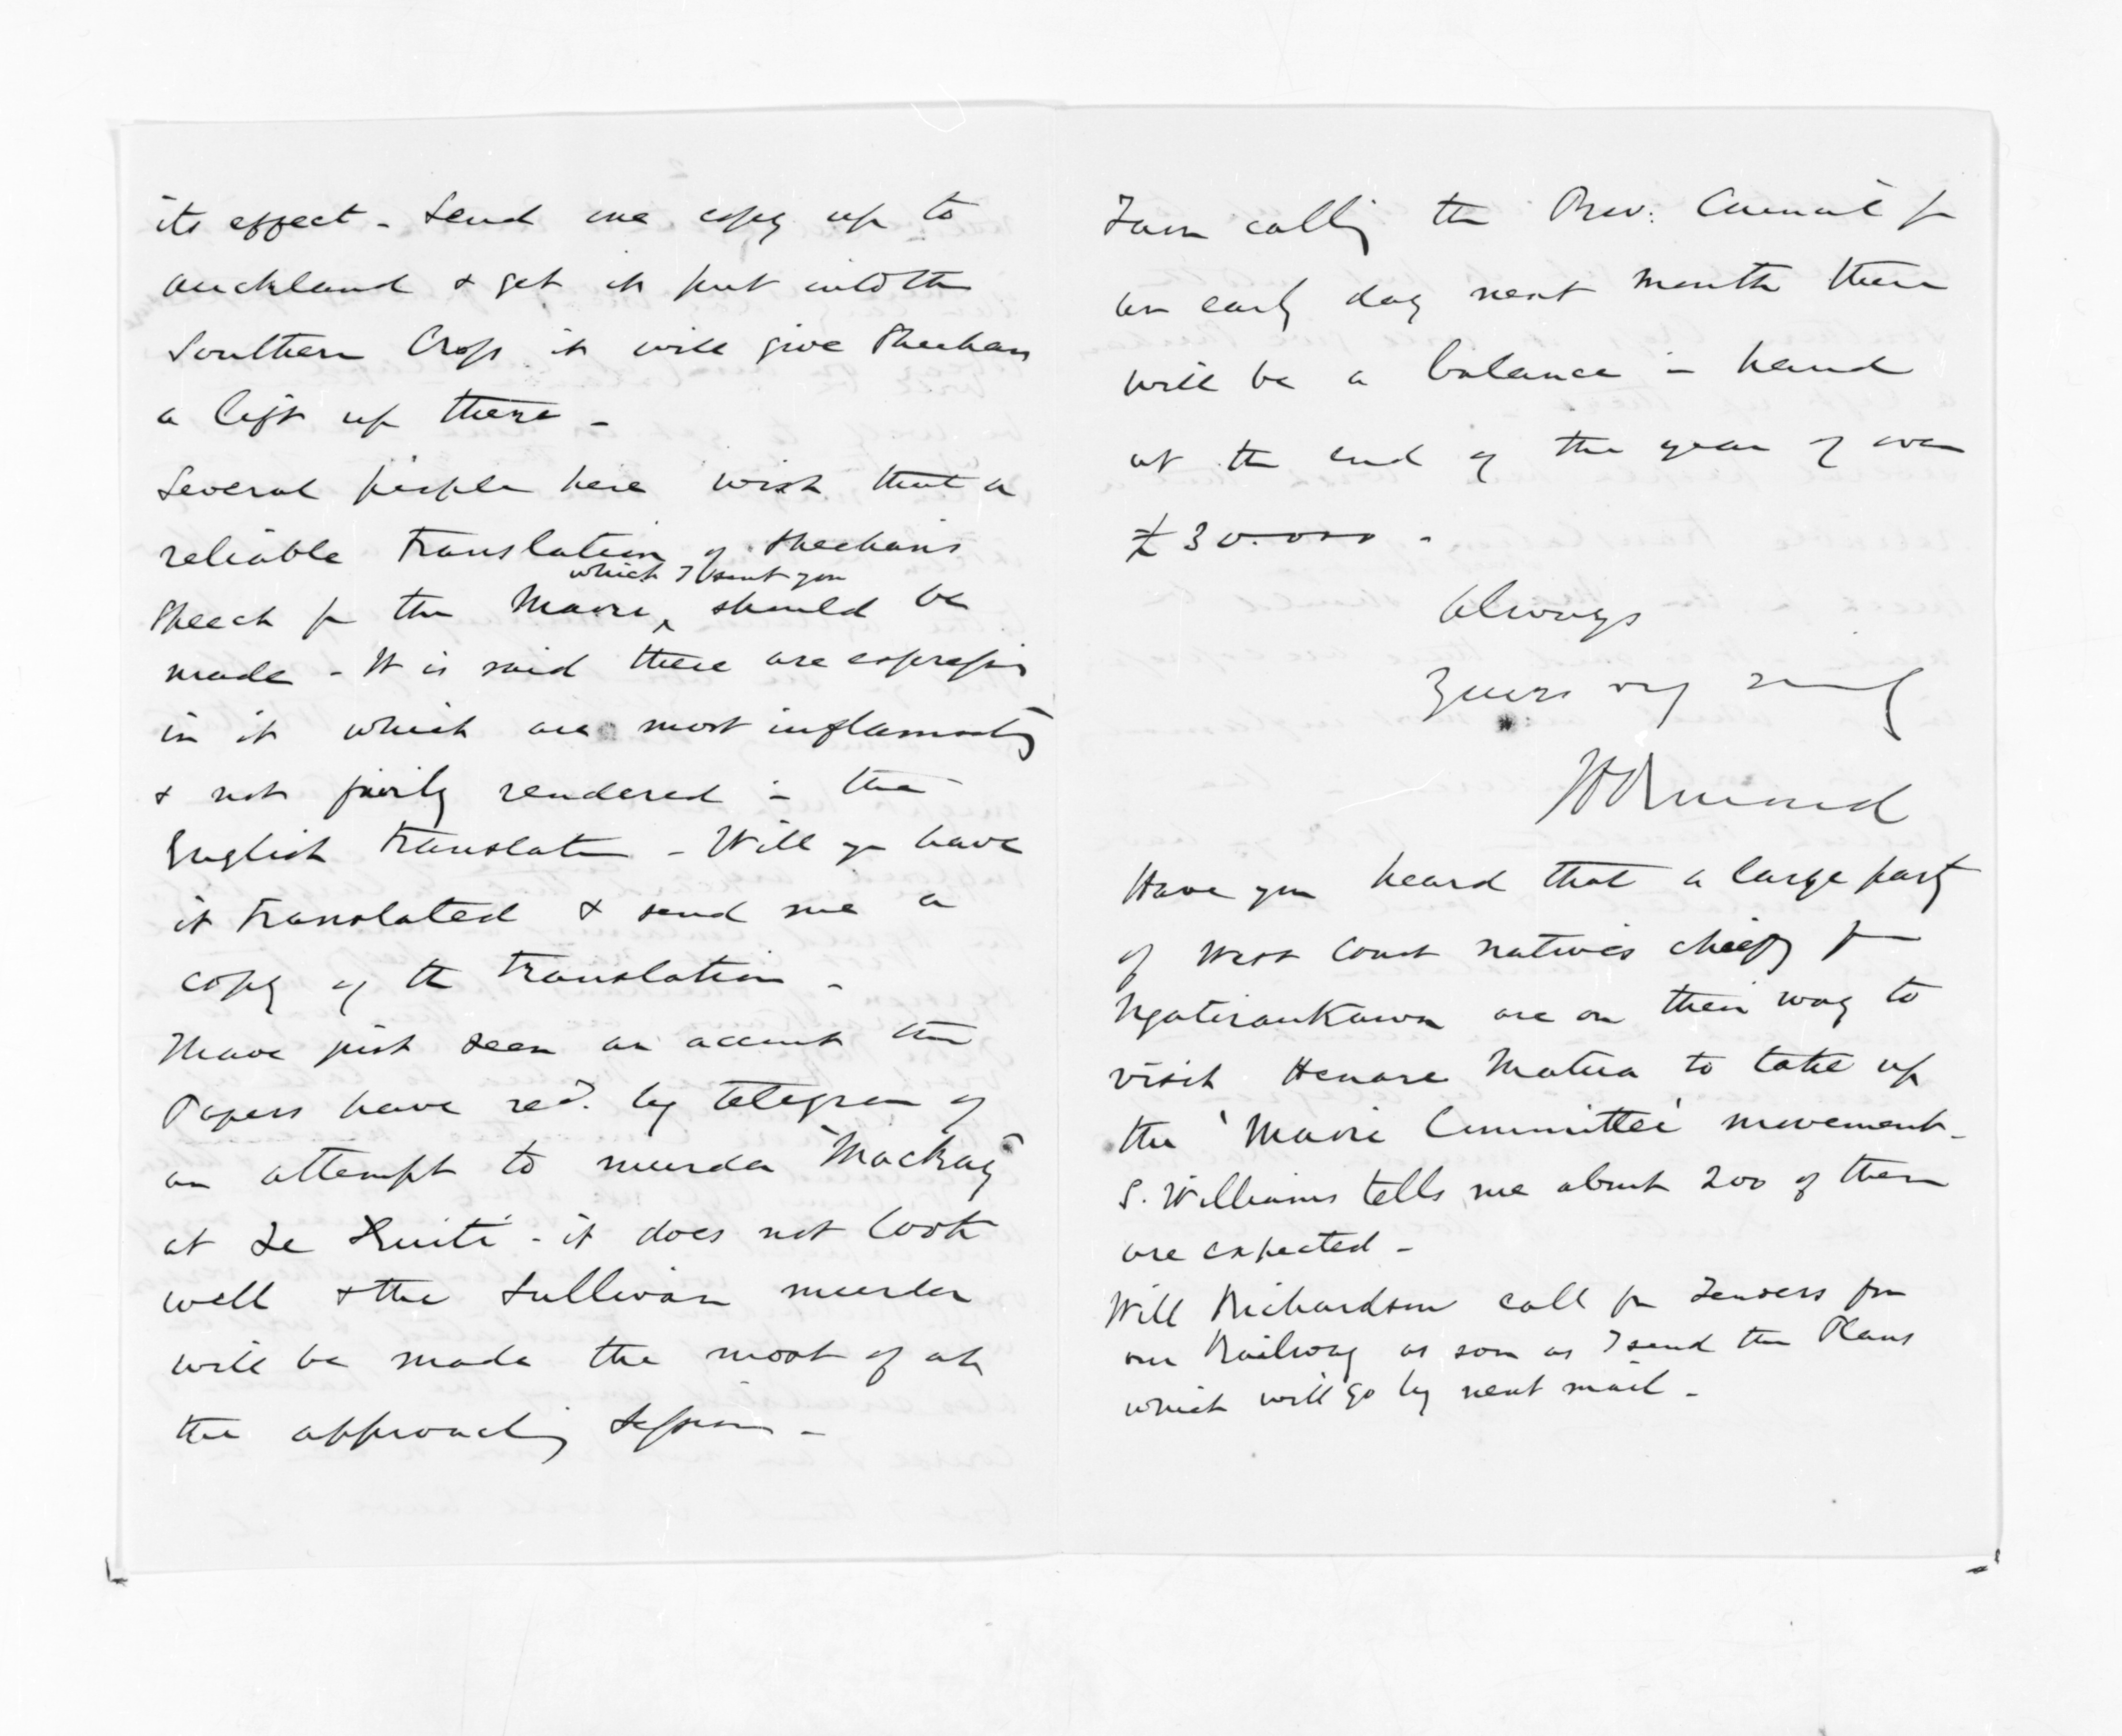 its effect - Send one copy up to
Auckland & get it put into the
Southern Cross it will give Sheehan
a lift up there -
Several people here wish that a
reliable translation of Sheehan's
which I sent you
Speech fr the Maori ^ should be
made - It is said there are expressions
in it which are most inflammatory
& not fairly rendered in the
English translation - Will you have
it translated & send me a
copy of the translation -
I have just seen an account the
Papers have recd. by telegram of
an attempt to murder "Mackay"
at Te Kuiti - it does not look
well & the Sullivan murder
will be made the most of at
the approaching Session -
I am calling the Prov: Council for
an early day next month there
will be a balance in hand
at the end of the year of over
£30.000 -
Always
Yours very sincerely
JD Ormond
Have you heard that a large party
of West Coast natives chiefly fr
Ngatiraukawa are on their way to
visit Henare Matua to take up
the 'Maori Committee' movement -
S. Williams tells me about 200 of them
are expected -
Will Richardson call for Tenders for
our Railway as soon as I send the Plans
which will go by next mail -